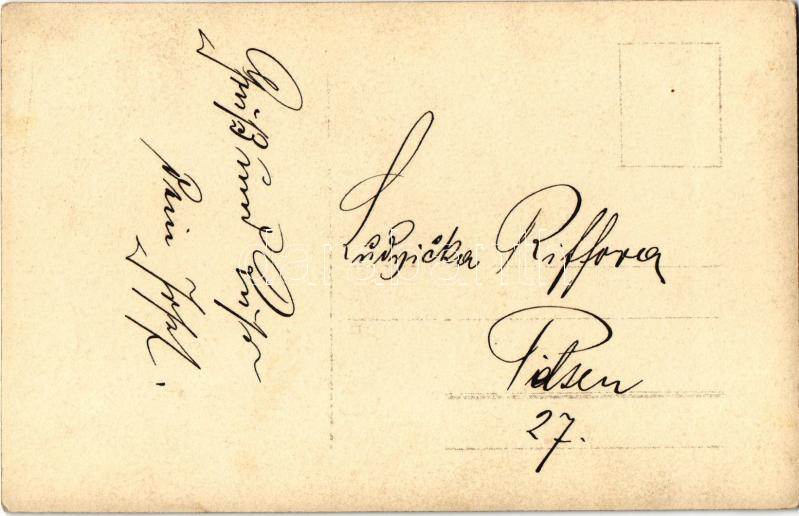 Gruß und Kuss
Dein Josef.
Ludvička Riffova
Pilsen
27.
darabanth